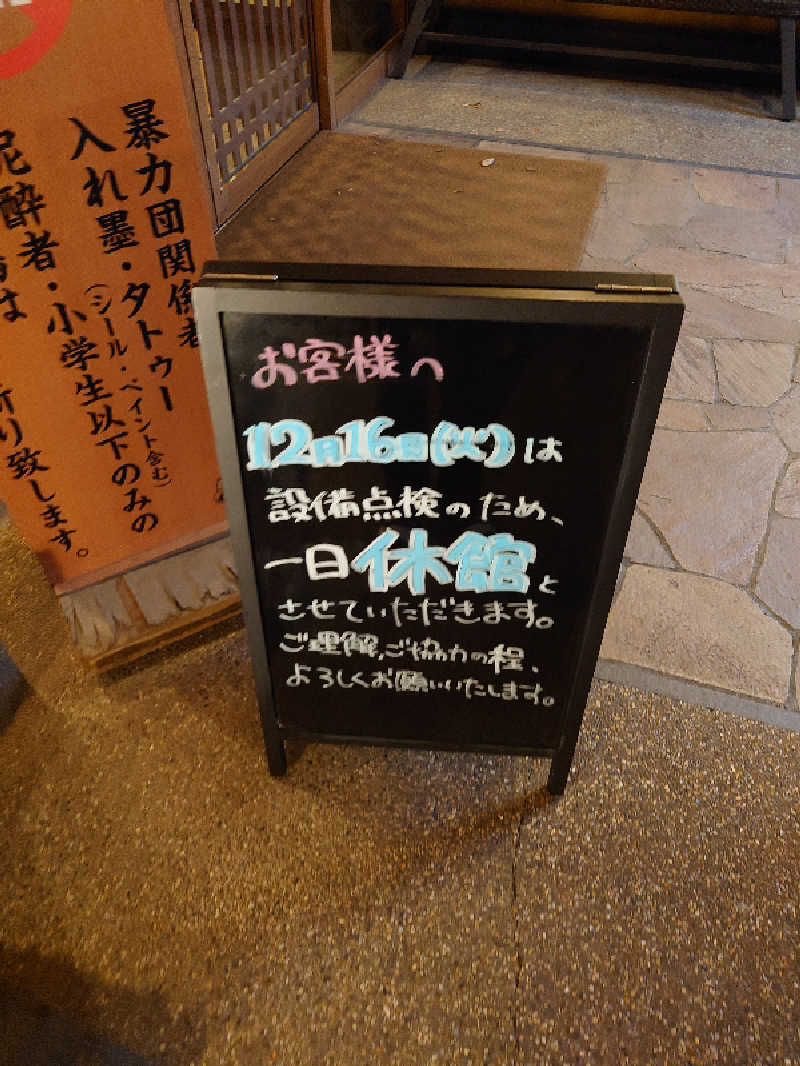 お客様へ
12月16日(火)は
設備点検のため、
一日休館と
させていただきます。
ご理解、ご協力の程、
よろしくお願いいたします。
暴力団関係者
入れ墨・タトゥー
(シール・ペイント含む)
泥酔者・小学生以下のみの
は
祈り致します。